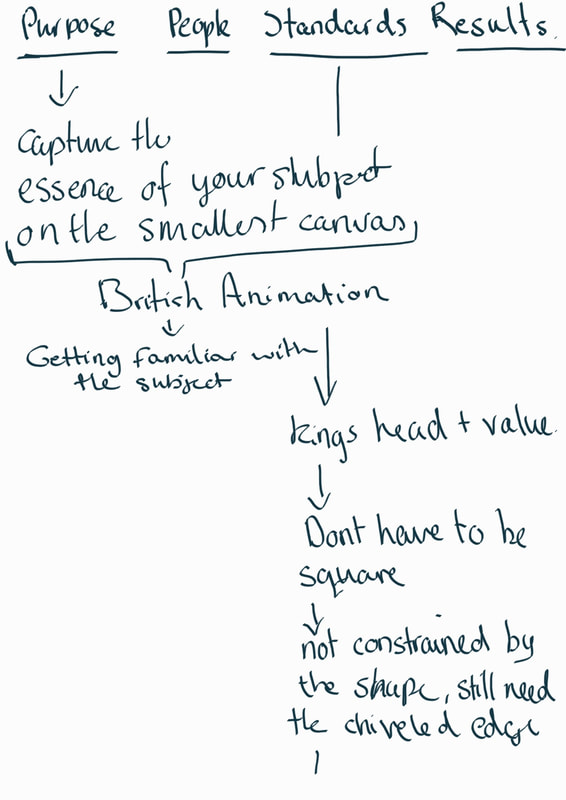 Purpose People Standards Results.
Capture the
essence of your subject
on the smallest canvas
British Animation
Getting familiar with
the subject
kings head + value.
Dont have to be
square
not constrained by
the shape, still need
the chiveled edge